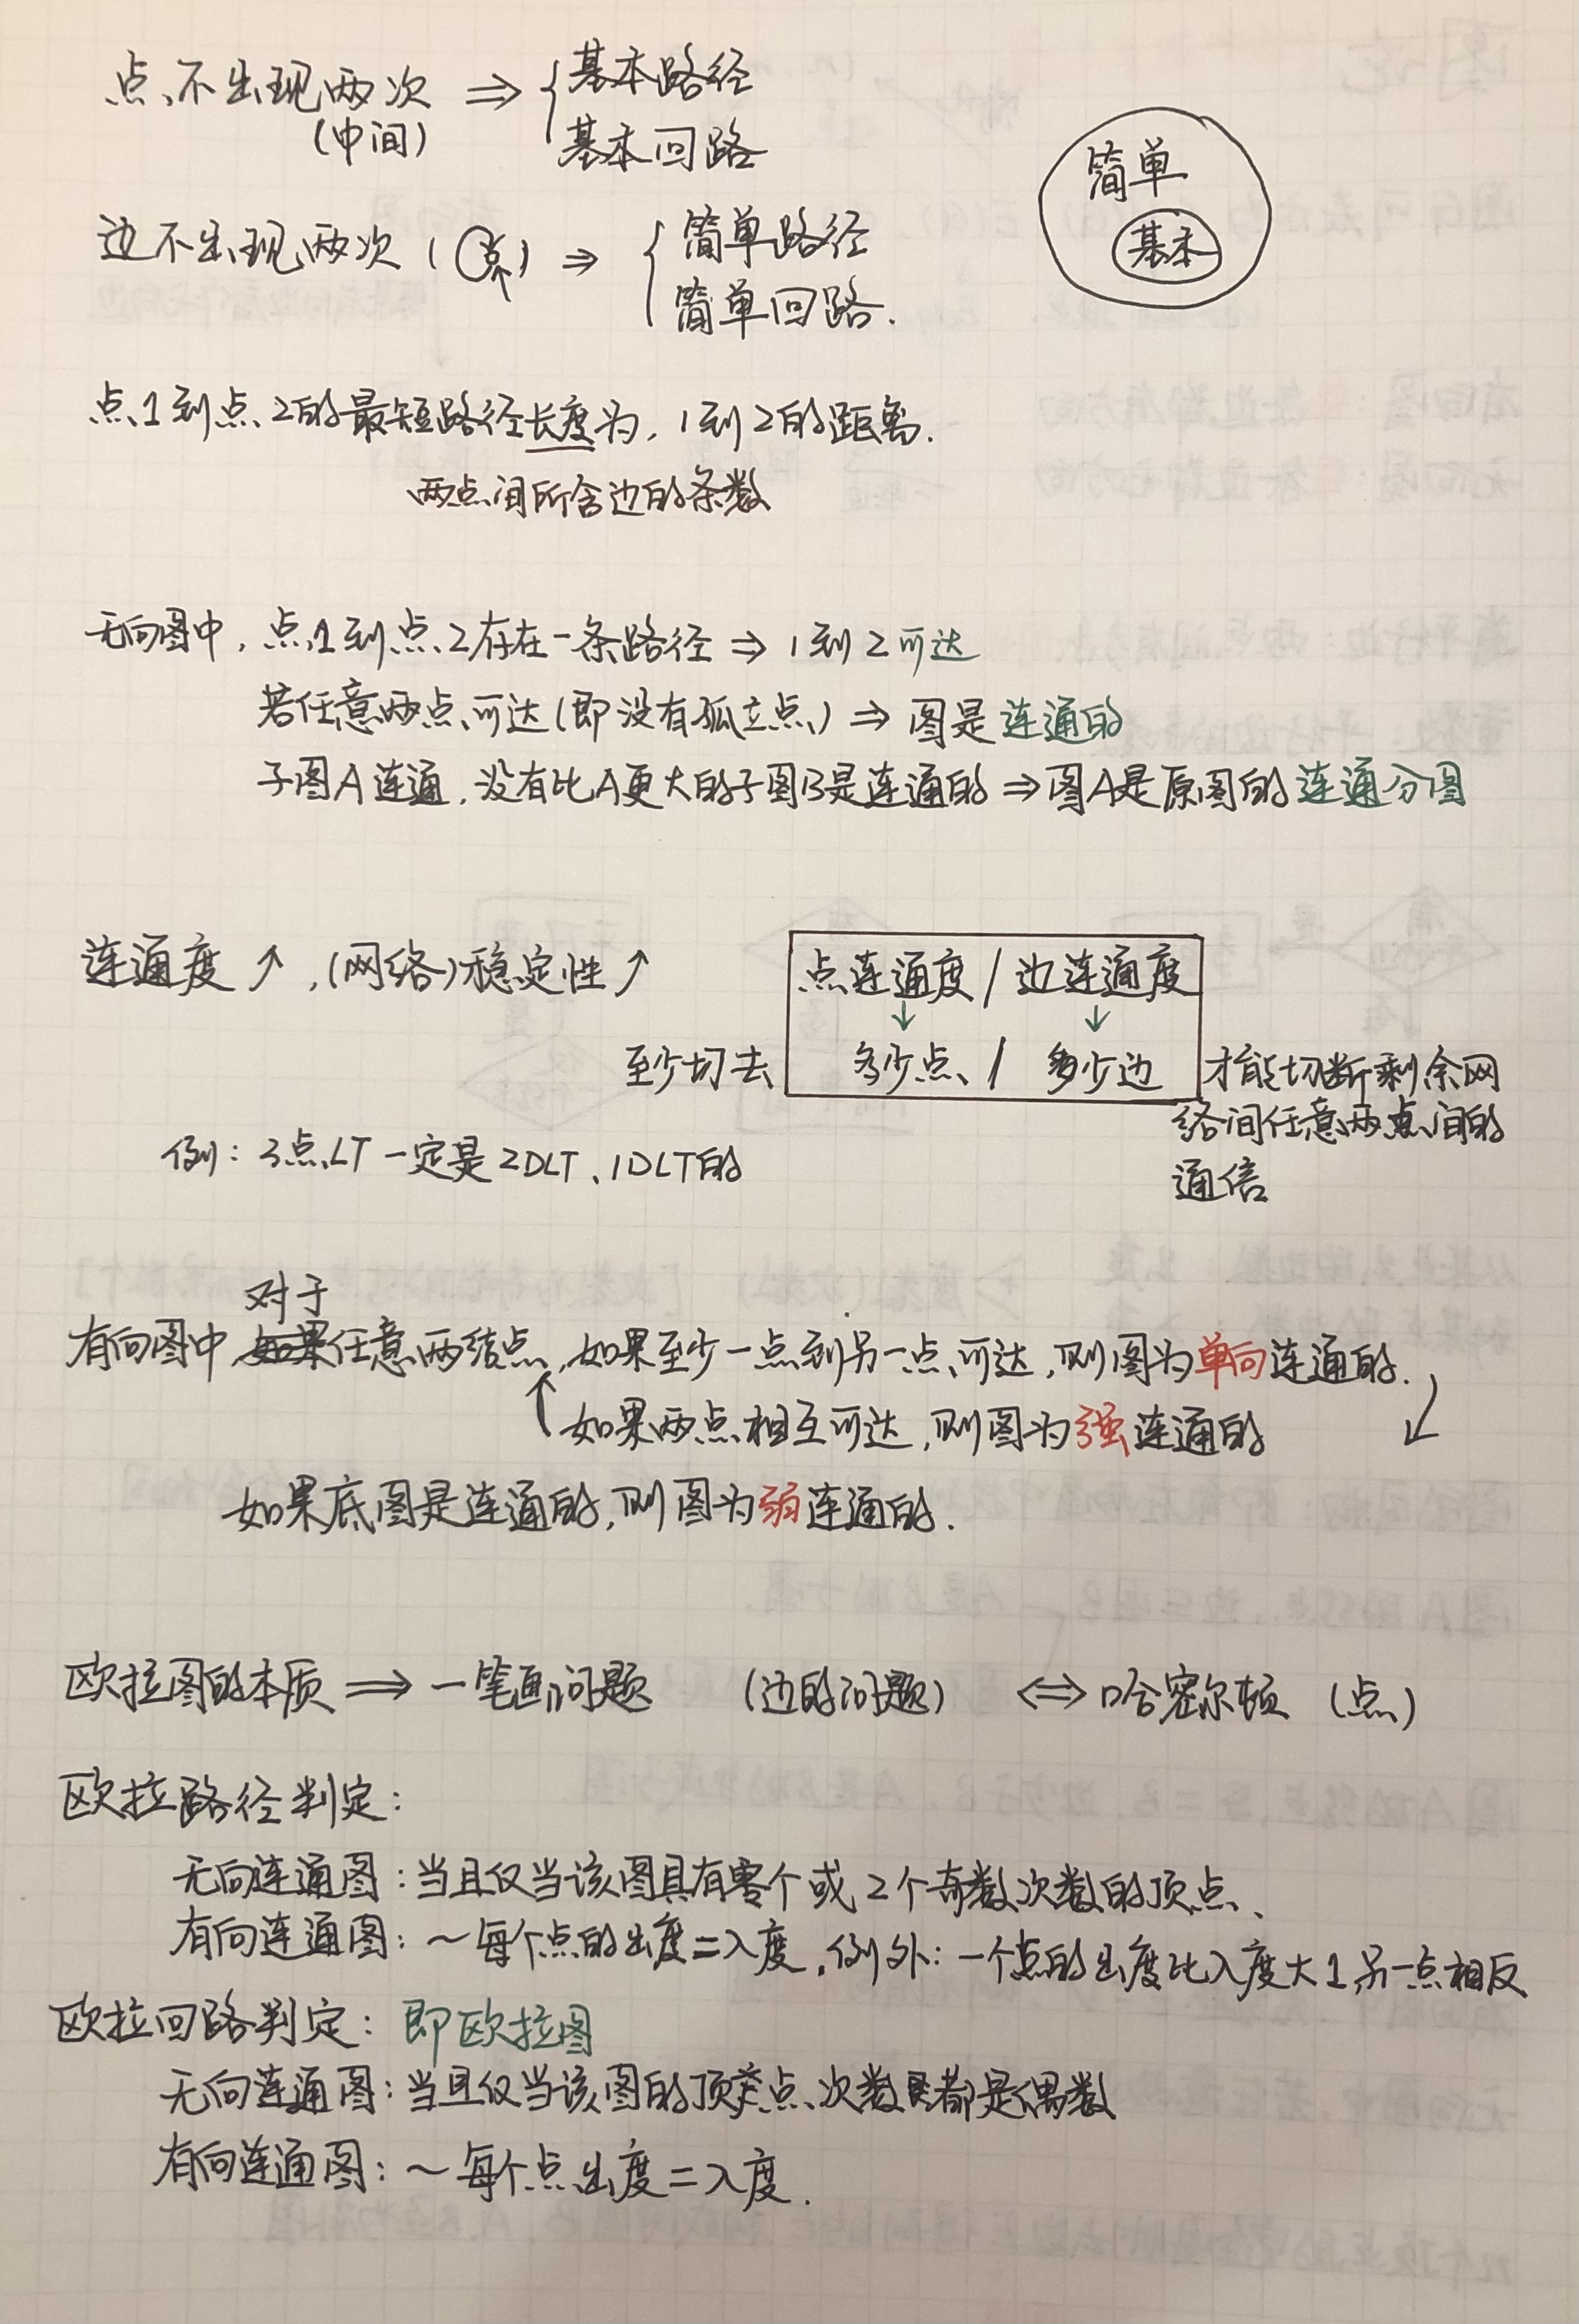 点不出现两次 ⇒ { 基本路径
(中间) 基本回路
简单
基本
边不出现两次 ( 点 ) ⇒ { 简单路径
简单回路.
点1到点2的最短路径长度为, 1到2的距离.
两点间所含边的条数
无向图中, 点1到点2存在一条路径 ⇒ 1到2可达
若任意两点可达(即没有孤立点) ⇒ 图是连通的
子图A连通, 没有比A更大的子图B是连通的 ⇒ 图A是原图的连通分图
连通度↗, (网络)稳定性↗
点连通度 / 边连通度
↓ ↓
至少切去 多少点 / 多少边 才能切断剩余网
络间任意两点间的
通信
例: 3点LT一定是2DLT、1DLT的
对于
有向图中如果任意两结点, 如果至少一点到另一点可达, 则图为单向连通的. ↙
↑如果两点相互可达, 则图为强连通的
如果底图是连通的, 则图为弱连通的.
欧拉图的本质 ⇒ 一笔画问题 (边的问题) ⇔ 哈密尔顿 (点)
欧拉路径判定:
无向连通图: 当且仅当该图具有零个或2个奇数次数的顶点、
有向连通图: ～每个点的出度=入度, 例外: 一个点的出度比入度大1,另一点相反
欧拉回路判定: 即欧拉图
无向连通图: 当且仅当该图的顶点次数都是偶数
有向连通图: ～每个点出度=入度.